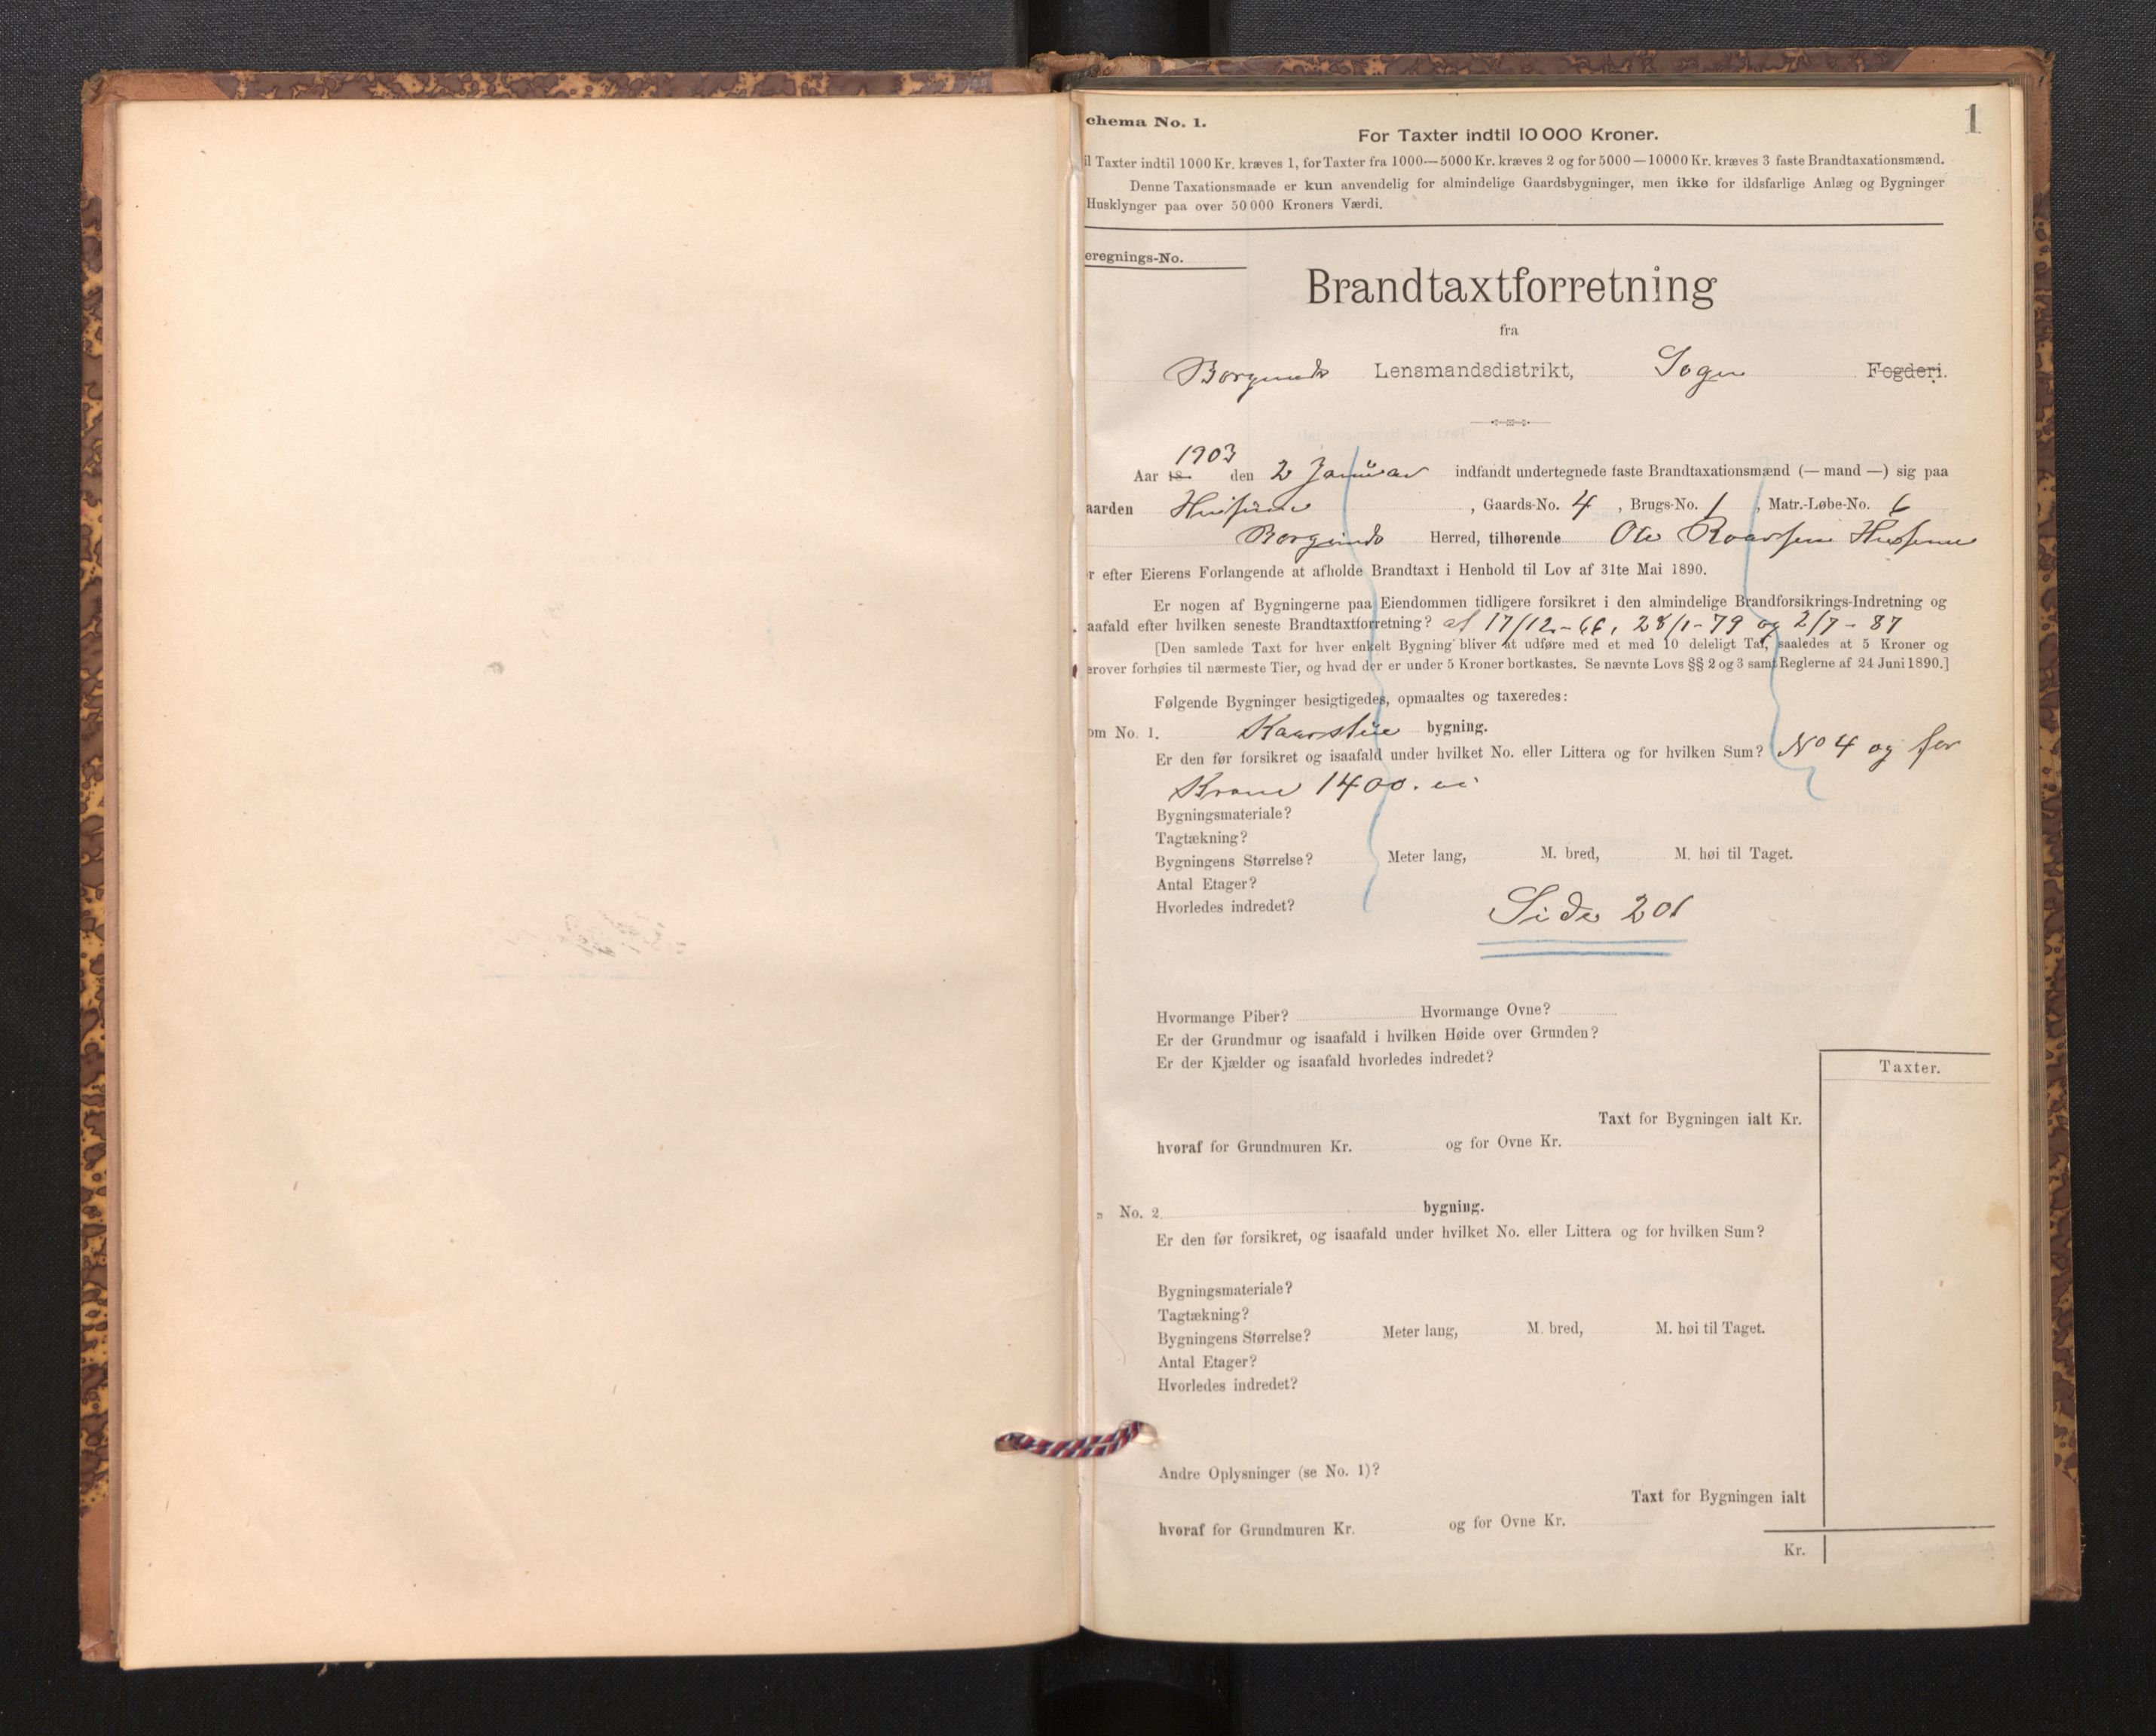 1
chema No. 1.
For Taxter indtil 10 000 Kroner.
il Taxter indtil 1000 Kr. kræves 1, for Taxter fra 1000—5000 Kr. kræves 2 og for 5000—10000 Kr. kræves 3 faste Brandtaxationsmænd.
Denne Taxationsmaade er kun anvendelig for almindelige Gaardsbygninger, men ikke for ildsfarlige Anlæg og Bygninger
Husklynger paa over 50 000 Kroners Værdi.
eregnings-No.
Brandtaxtforretning
fra
Borgunds Lensmandsdistrikt, Sogn Fogderi.
Aar 18 1903 den 2 Januar indfandt undertegnede faste Brandtaxationsmænd (— mand —) sig paa
aarden Husum, Gaards-No. 4, Brugs-No. 1, Matr.-Løbe-No. 6
Borgunds Herred, tilhørende Ole Husum
r efter Eierens Forlangende at afholde Brandtaxt i Henhold til Lov af 31te Mai 1890.
Er nogen af Bygningerne paa Eiendommen tidligere forsikret i den almindelige Brandforsikrings-Indretning og
aafald efter hvilken seneste Brandtaxtforretning? af 17/12-66, 28/1-79 og 2/7-87
[Den samlede Taxt for hver enkelt Bygning bliver at udføre med et med 10 deleligt Tal, saaledes at 5 Kroner og
erover forhøies til nærmeste Tier, og hvad der er under 5 Kroner bortkastes. Se nævnte Lovs §§ 2 og 3 samt Reglerne af 24 Juni 1890.]
Følgende Bygninger besigtigedes, opmaaltes og taxeredes:
om No. 1. bygning.
Er den før forsikret og isaafald under hvilket No. eller Littera og for hvilken Sum? No 4 og for
Kroner 1400.
Bygningsmateriale?
Tagtækning?
Bygningens Størrelse? Meter lang, M. bred, M. høi til Taget.
Antal Etager?
Hvorledes indredet?
Side 201
Hvormange Piber? Hvormange Ovne?
Er der Grundmur og isaafald i hvilken Høide over Grunden?
Er der Kjælder og isaafald hvorledes indredet?
Taxter.
Taxt for Bygningen ialt Kr.
hvoraf for Grundmuren Kr. og for Ovne Kr.
„ No. 2. bygning.
Er den før forsikret, og isaafald under hvilket No. eller Littera og for hvilken Sum?
Bygningsmateriale?
Tagtækning?
Bygningens Størrelse? Meter lang, M. bred, M. høi til Taget.
Antal Etager?
Hvorledes indredet?
Andre Oplysninger (se No. 1)?
Taxt for Bygningen ialt
hvoraf for Grundmuren Kr. og for Ovne Kr.
Kr.